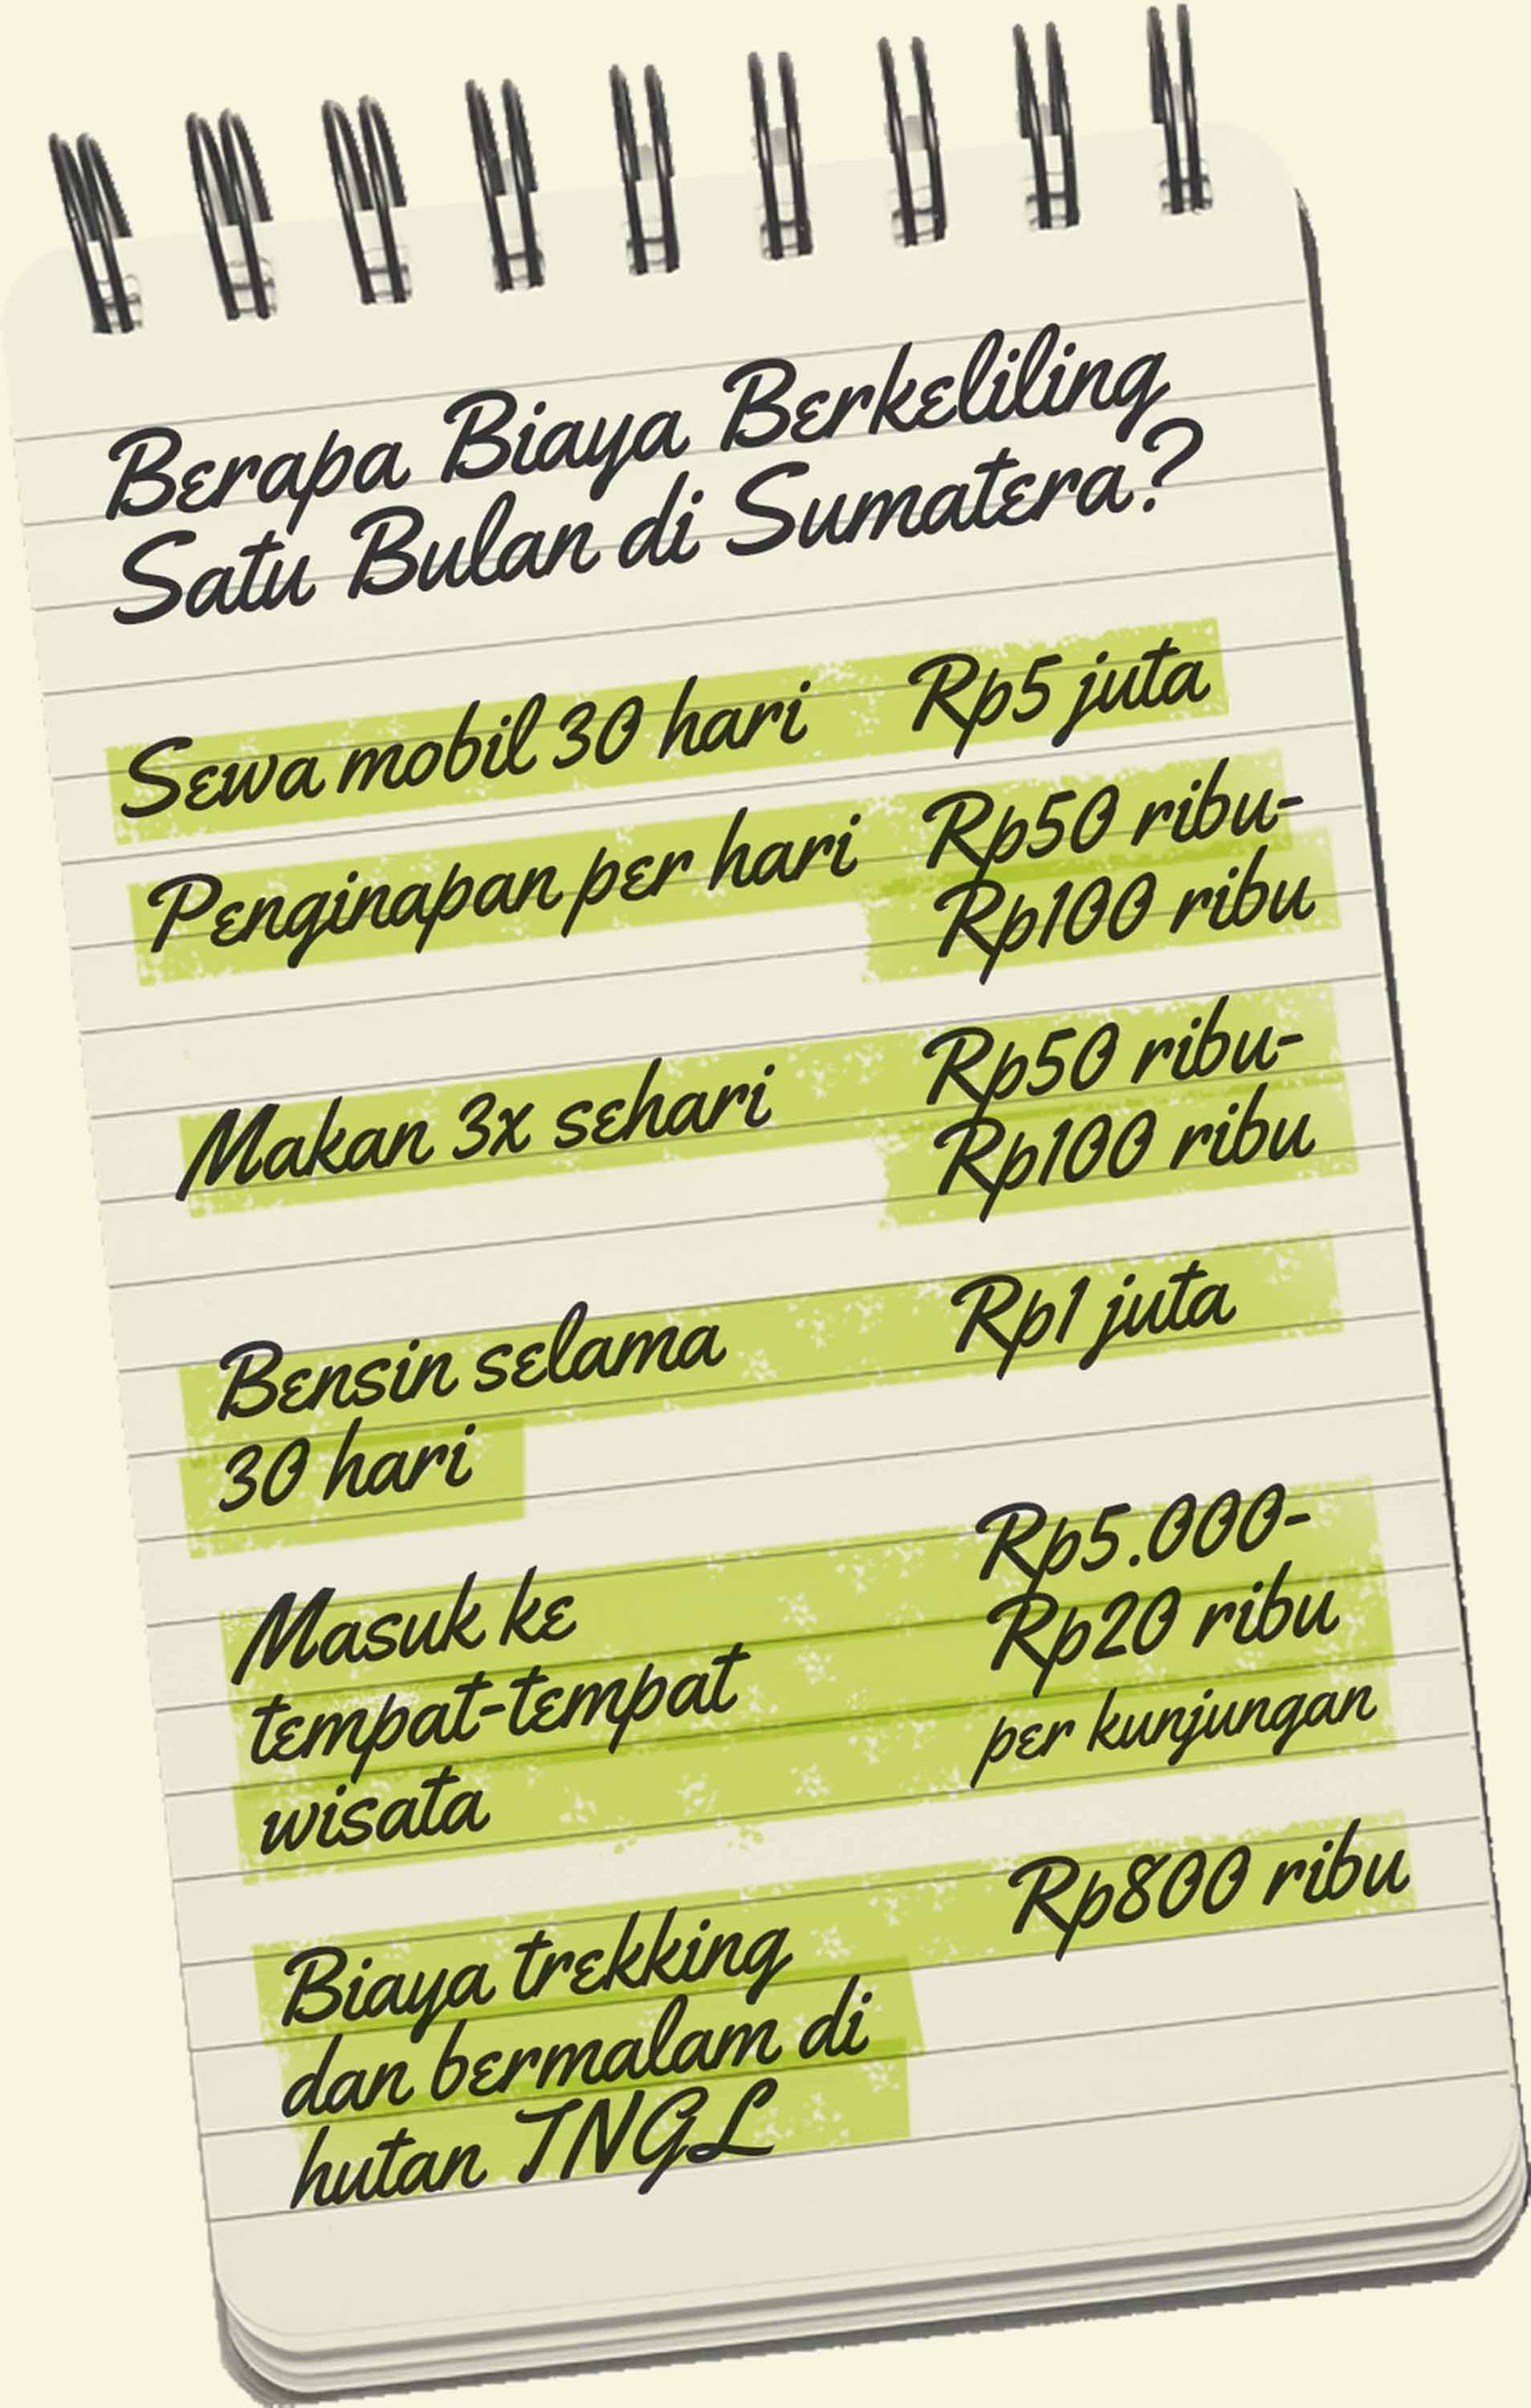 Berapa Biaya Berkeliling
Satu Bulan di Sumatera?
Sewa mobil 30 hari Rp5 juta
Penginapan per hari Rp50 ribu-
Rp100 ribu
Makan 3x sehari Rp50 ribu-
Rp100 ribu
Bensin selama Rp1 juta
30 hari
Masuk ke Rp5.000-
tempat-tempat Rp20 ribu
wisata per kunjungan
Biaya trekking Rp800 ribu
dan bermalam di
hutan TNGL